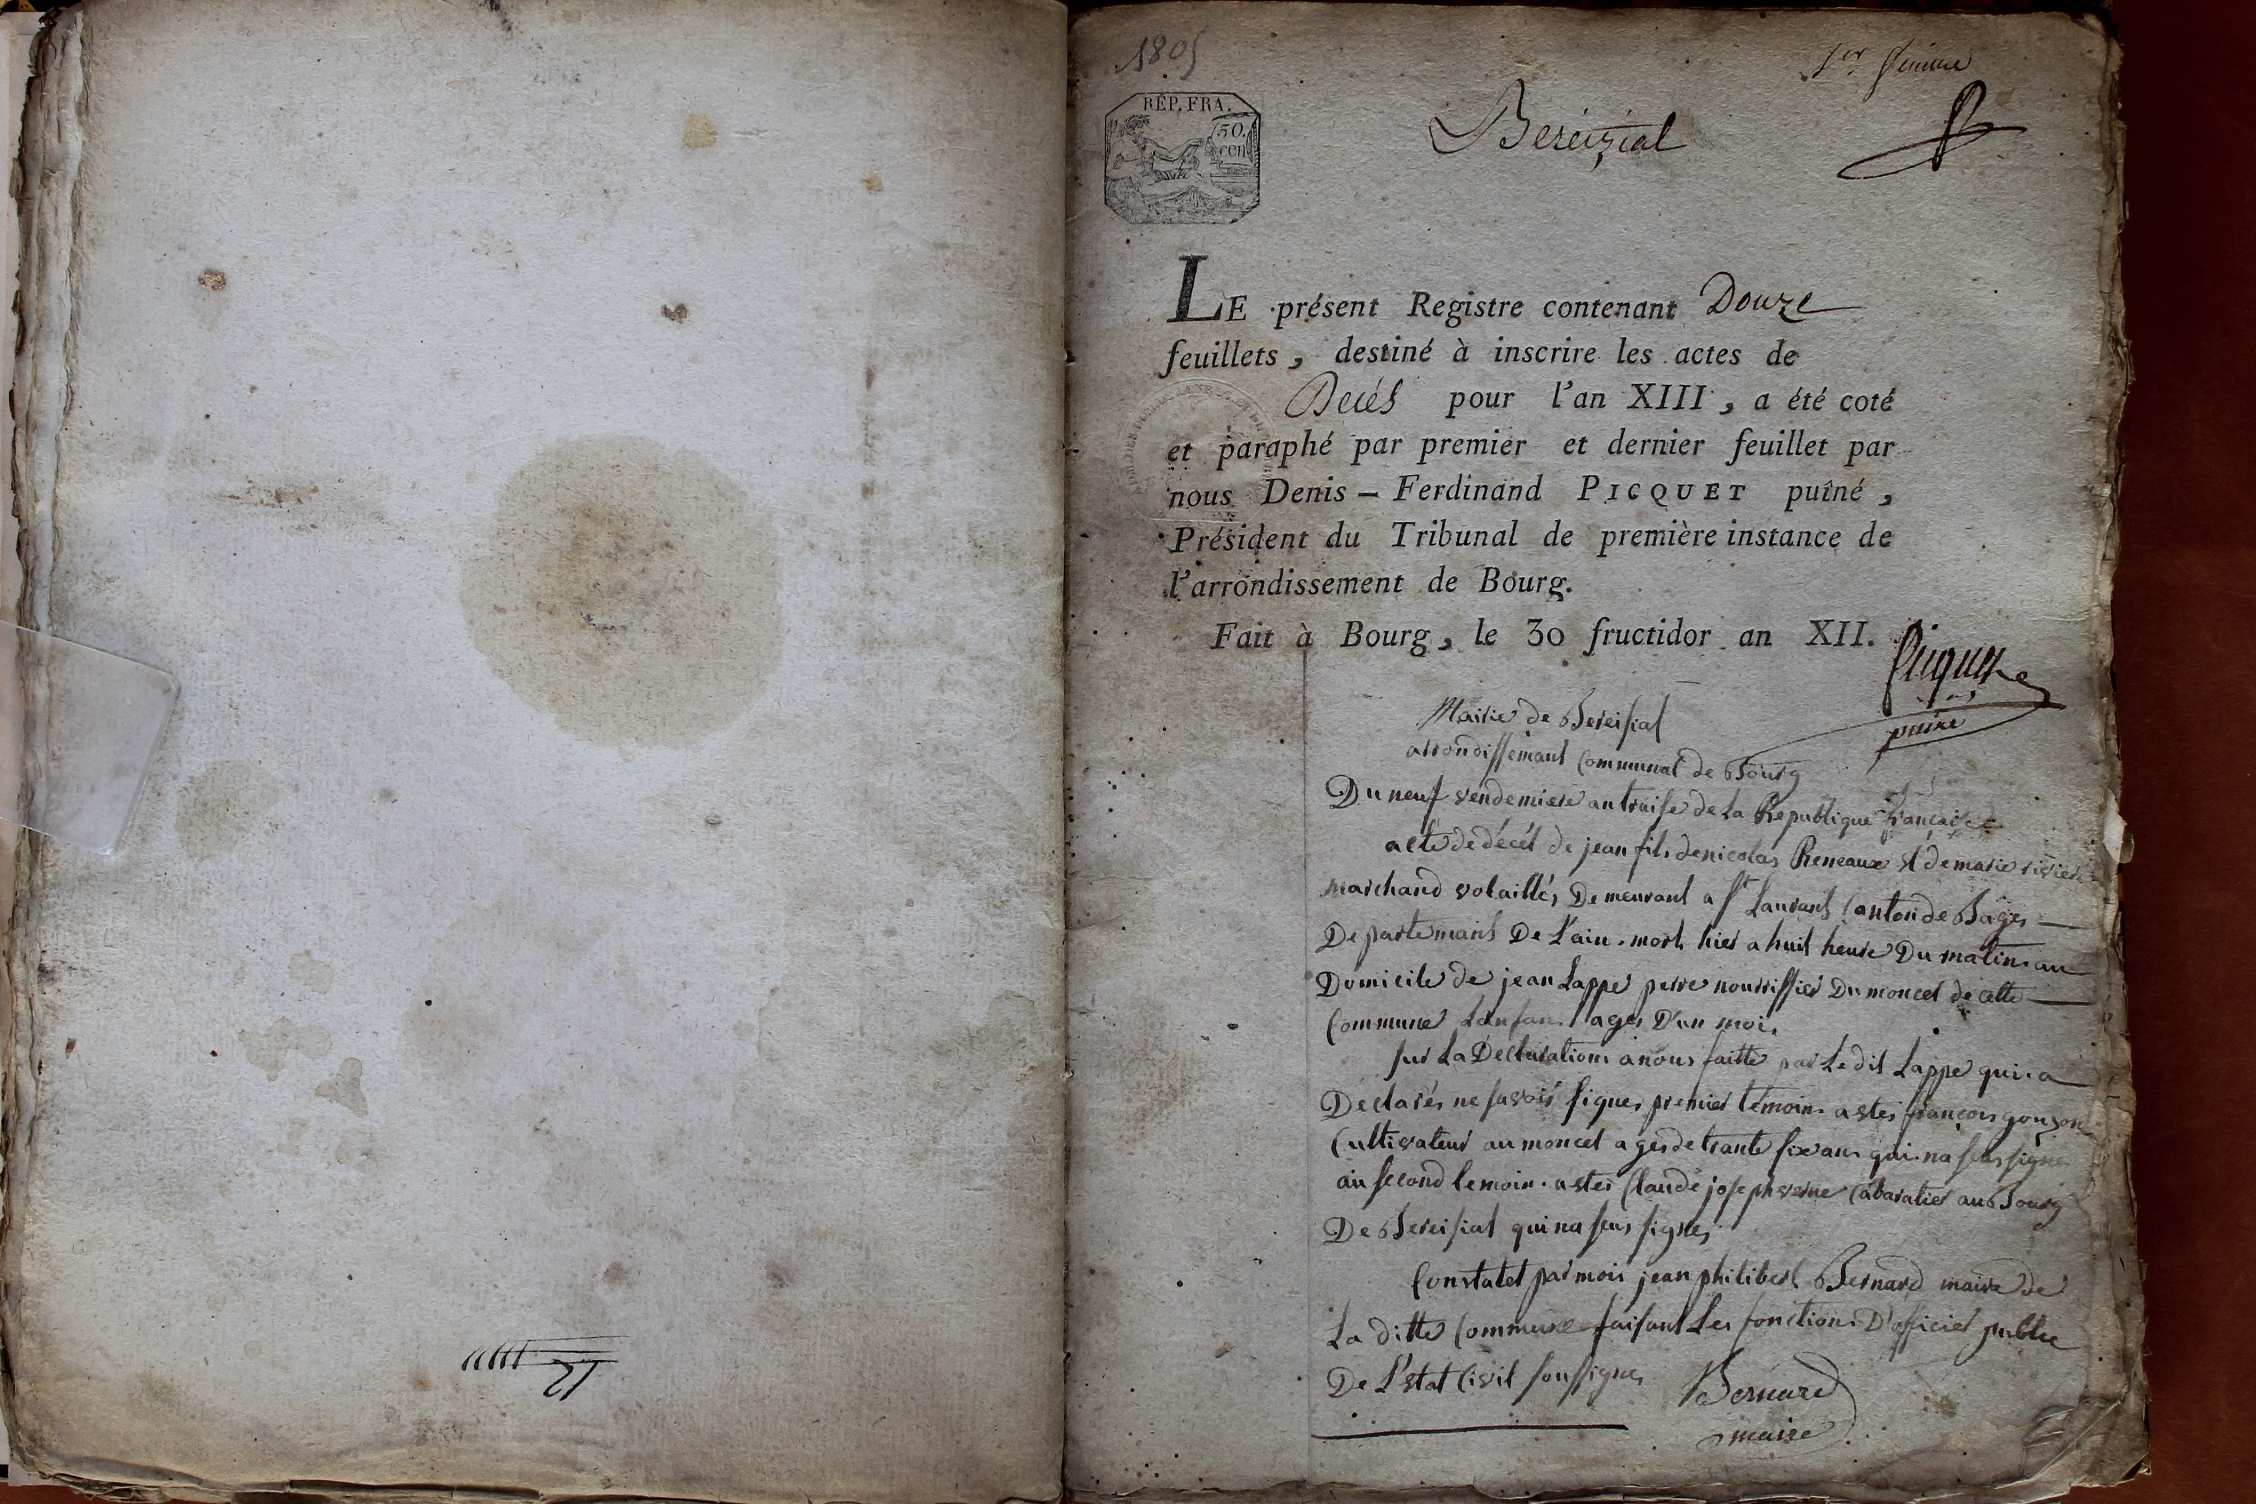 1805
1er feuillet
RÉP. FRA.
50.
cen
Béréizial
LE présent Registre contenant Douze
feuillets, destiné à inscrire les actes de
Décés pour l'an XIII, a été coté
et paraphé par premier et dernier feuillet par
nous Denis - Ferdinand PICQUET puîné,
Président du Tribunal de première instance de
l'arrondissement de Bourg.
Fait à Bourg, le 30 fructidor an XII.
Picquet
puiné
Mairie de Bereisial
arrondissemant Communal de Bourg
Du neuf vendemiere an traise de La Republique française
acte de décés de jean fils de nicolas Reneaux et de marie riviere
marchand volaillés Demeurant a St Laurans Canton de Bages
Departemans De L'ain. mort hier a huit heure Du matin. au
Domicile de jean Lappe perre nourrissier Du moncel de cette
Commune Lenfan agés D'un mois
sur La Declaration a nous faitte par Le dit Lappe qui a
Declarés ne savoir signer premier temoin. a stei françois gonzon
Cultivateur au moncel agés de trante six ans qui na seus signe
au second temoin. a stei Claude joseph verne Cabaratier au Bourg
De Bereisial qui na seus signés
Constatet par moi jean philibert Bernard maire de
La ditte Commune faisant Les fonctions D'officier public
De L'état Civil soussignes
Bernard
maire